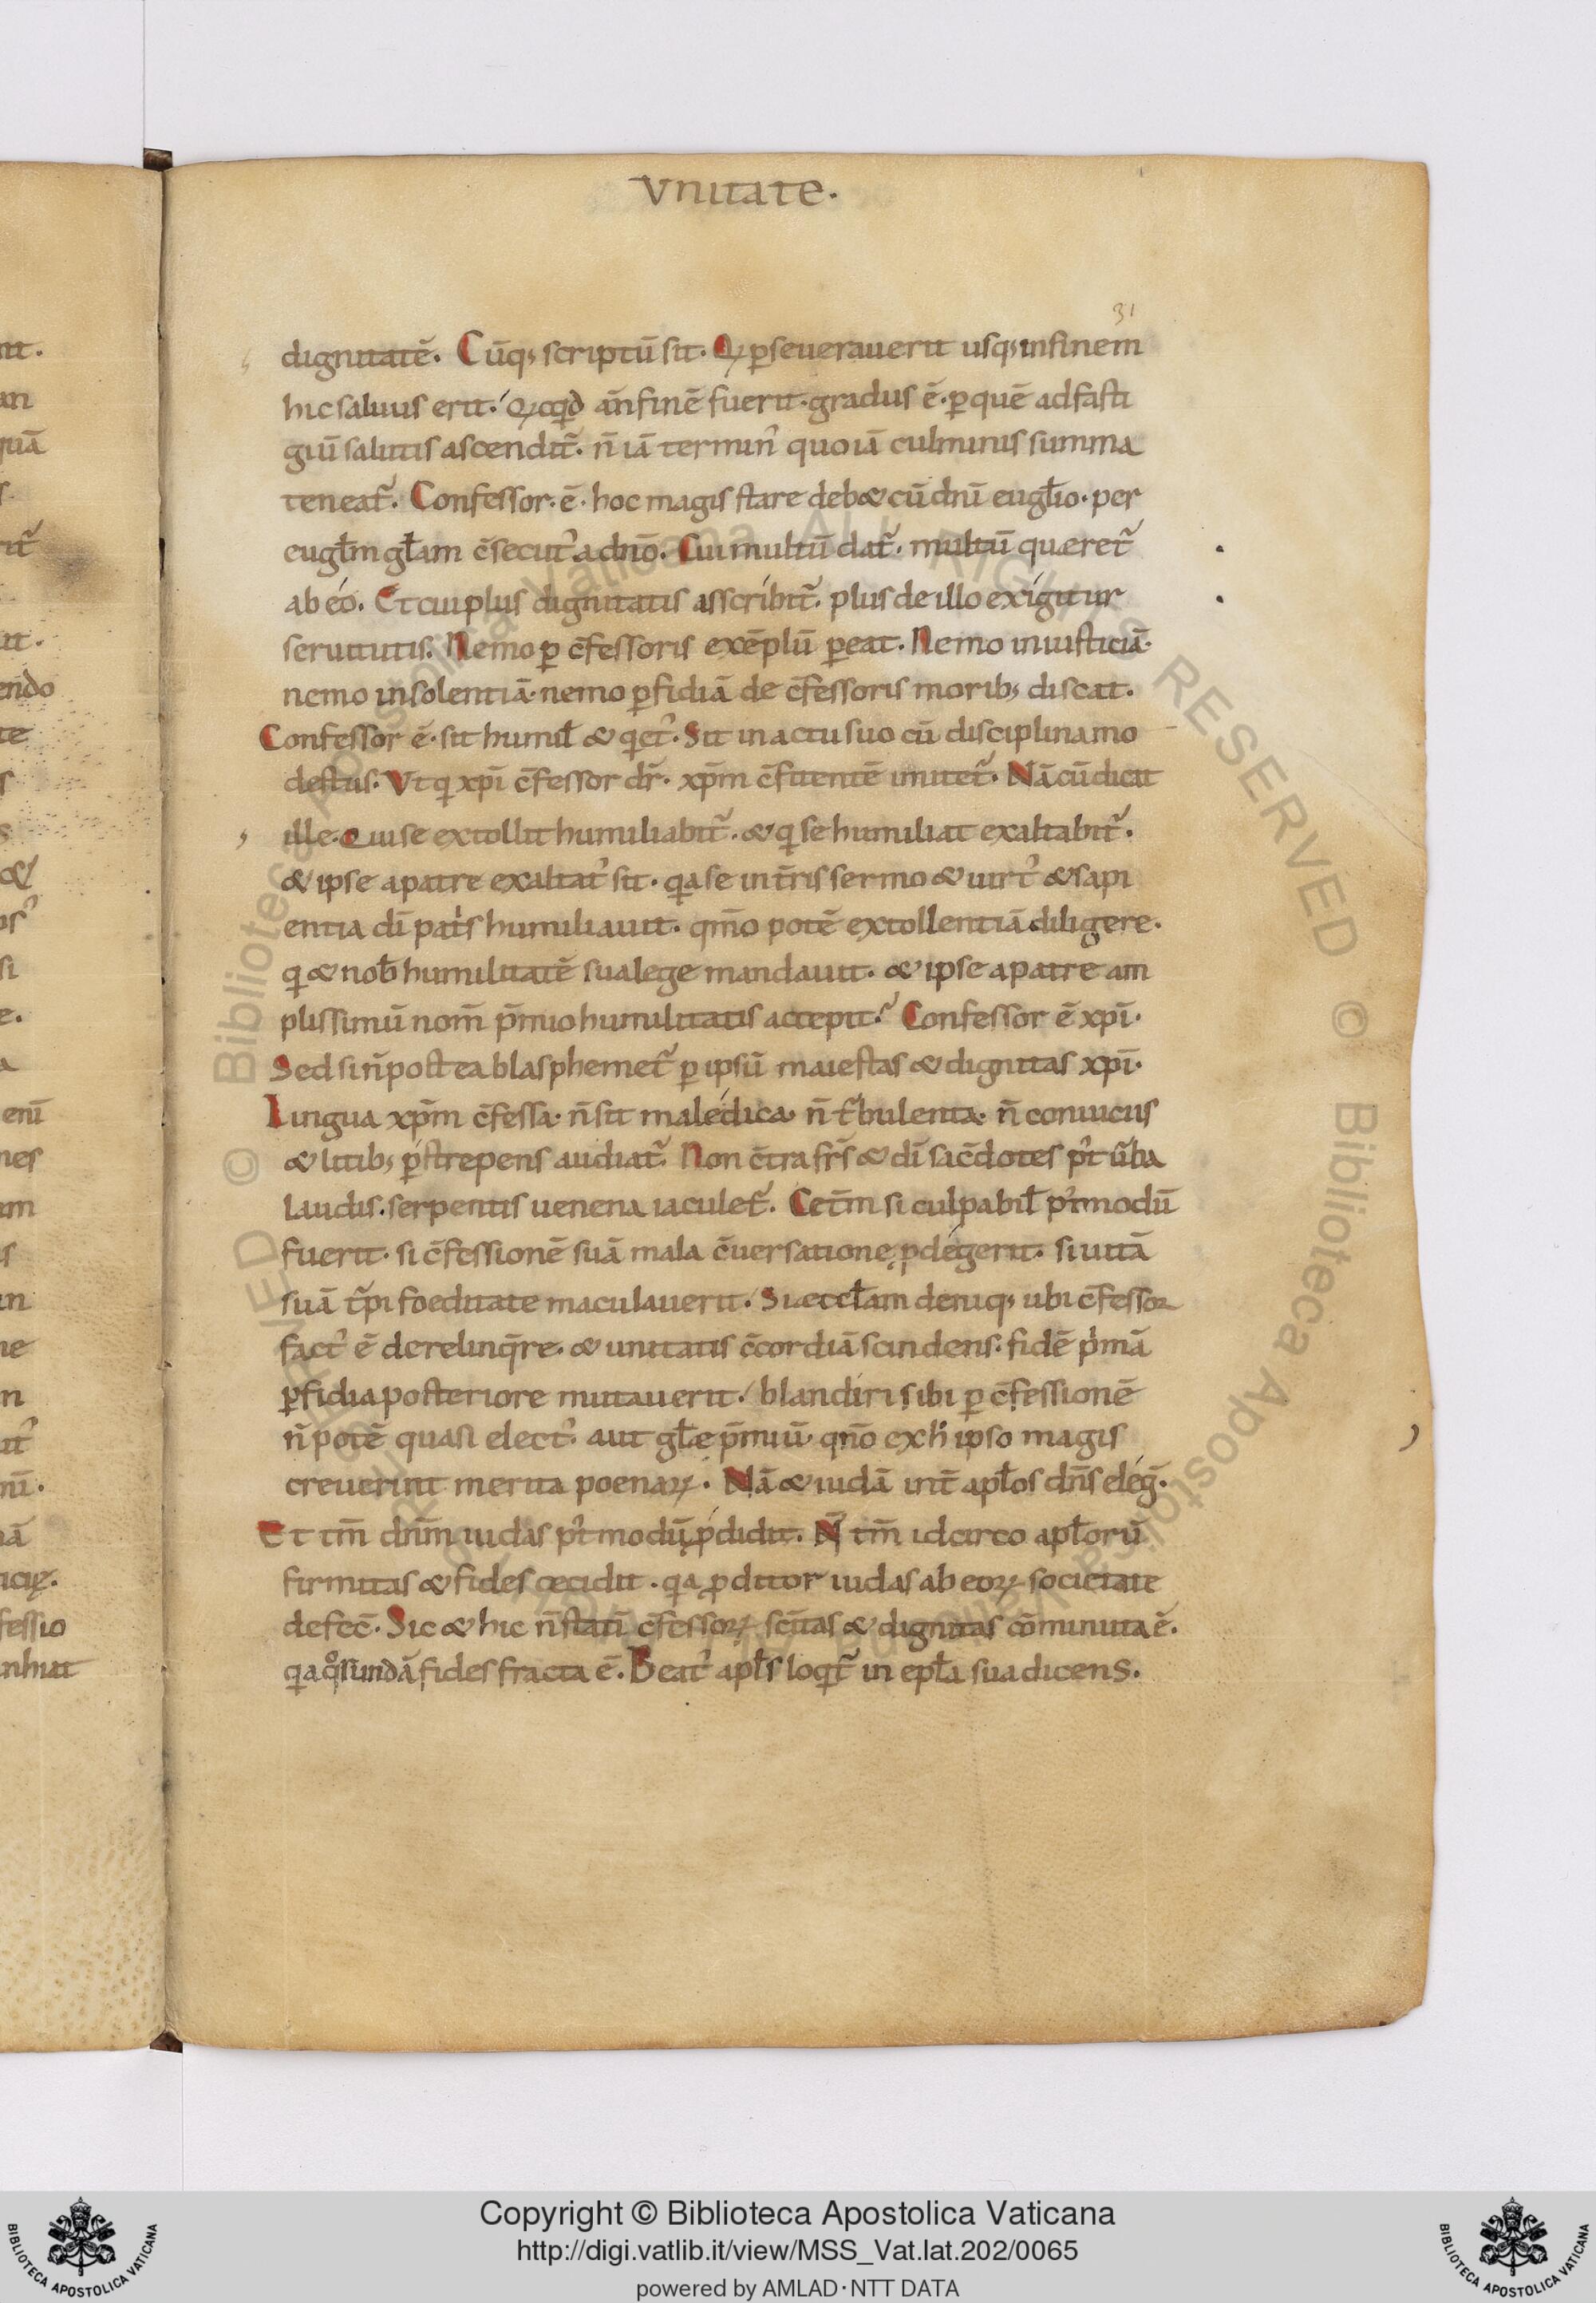 Vnitate.
31
dignitatē. Cūq; scriptū sit. Q̇ p̱seuerauerit usq; infinem
hic saluus erit. Qicq̇d an̄ finē fuerit. gradus ē. p̱ quē adfasti
giū salutis ascendit᷑. n̄ iā terminꝰ quo iā culminis summa
teneat᷑. Confessor. ē. hoc magis stare deb& cū dn̄i eugl̄io. per
eugl̄m gl̄am c̄secutꝰ a dn̄o. Cui multū dat᷑. multū quæret᷑
ab eo. Et cui plus dignitatis asscribit᷑. plus de illo exigitur
seruitutis. Nemo ꝑ c̄fessoris exēplū ꝑeat. Nemo iniusticiā.
nemo insolentiā. nemo ꝑfidiā de c̄fessoris morib; discat.
Confessor ē. sit humil̄ & q̇etꝰ. Sit in actu suo cū disciplina mo
destus. Vt q̇ xp̄i c̄fessor dr̄. xp̄m c̄fitentē imitet᷑. Nā cū dicit
ille. Qui se extollit humiliabit᷑. & q̇ se humiliat exaltabit᷑.
& ipse apatre exaltatꝰ sit. q̇a se in t̄ris sermo & uirtꝰ & sapi
entia dī patṙs humiliauit. qm̄o potē extollentiā diligere.
q̇ & nob̄ humilitatē sua lege mandauit. & ipse apatre am
plissimū nom̄ p̄mio humilitatis accepit. Confessor ē xp̄i.
Sed si n̄ postea blasphemet᷑ ꝑ ipsū maiestas & dignitas xp̄i.
Lingua xp̄m c̄fessa. n̄ sit maledica. n̄ tꝰbulenta. n̄ conuiciis
& litib; ꝑstrepens audiat᷑. Non c̄tra frs̄ & dī sac̄dotes pꝰt ūba
laudis. serpentis uenena iaculet᷑. Cet̄m si culpabil̄ pꝰtmodū
fuerit. si c̄fessionē suā mala c̄uersatione ꝓdegerit. si uitā
suā tr̄pi foeditate maculauerit. Si æccl̄am deniq; ubi c̄fessor
factꝰ ē derelinq̄re. & unitatis c̄cordiā scindens. fidē pṙmā
ꝑfidia posteriore mutauerit. blandiri sibi ꝑ c̄fessionē
n̄ potē quasi electꝰ aut gl̄æ p̄miū. qn̄o ex h̄ ipso magis
creuerint merita poenaꝝ. Nā & iudā int̄ apl̄os dn̄s eleḡ.
Et tm̄ dn̄m iudas pꝰtmodū ꝓdidit. N̄ tm̄ idcirco apl̄orū
firmitas & fides cecidit. q̇a ꝓditor iudas ab eoꝝ societate
defec̄. Sic & hic n̄ statī c̄fessoꝝ sc̄itas & dignitas cōminuta ē.
q̇a qͦrundā fides fracta ē. Beatꝰ apl̄s loq̇t᷑ in epl̄a sua dicens.
Copyright © Biblioteca Apostolica Vaticana
http://digi.vatlib.it/view/MSS_Vat.lat.202/0065
powered by AMLAD·NTT DATA